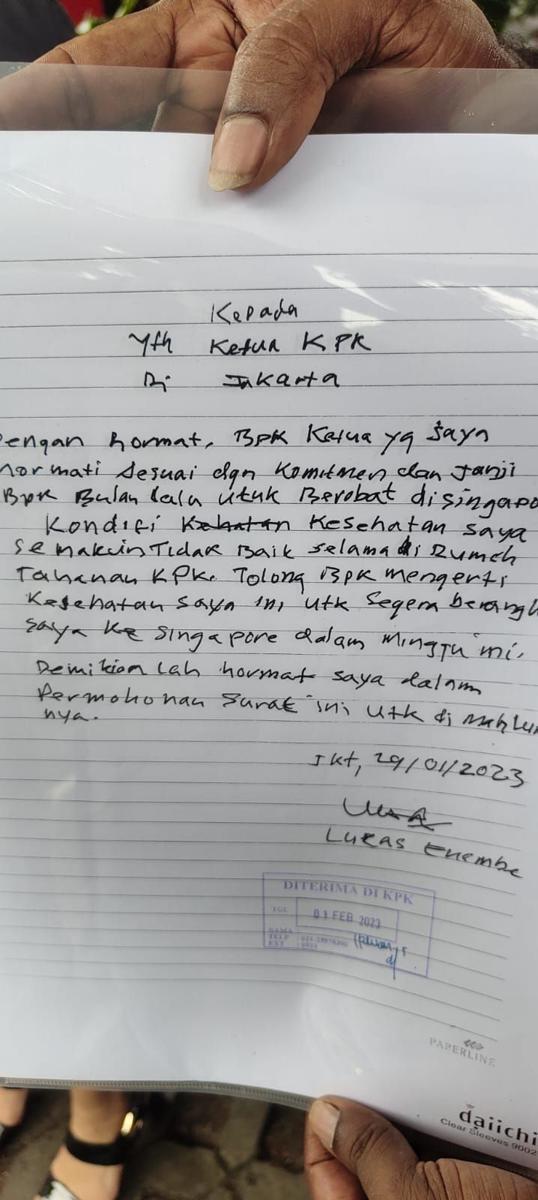 Kepada
Yth Ketua KPK
Di Jakarta
Dengan hormat, BPK Ketua yg saya
hormati sesuai dgn Komitmen dan Janji
BPK Bulan lalu utuk Berobat disingapo
Kondisi Kesehatan saya
semakin Tidak Baik selama di Rumah
Tahanan KPK. Tolong BPK mengerti
Kesehatan saya ini, utk segera berangk
saya ke singapore dalam minggu ini.
Demikian lah hormat saya dalam
Permohonan surat ini utk di
nya.
Jkt, 29/01/2023
Lukas Enembe
DITERIMA DI KPK
TGL
01 FEB 2023
NAMA
TELP
EXT
PAPERLINE
daiichi
Clear Sleeves 9002